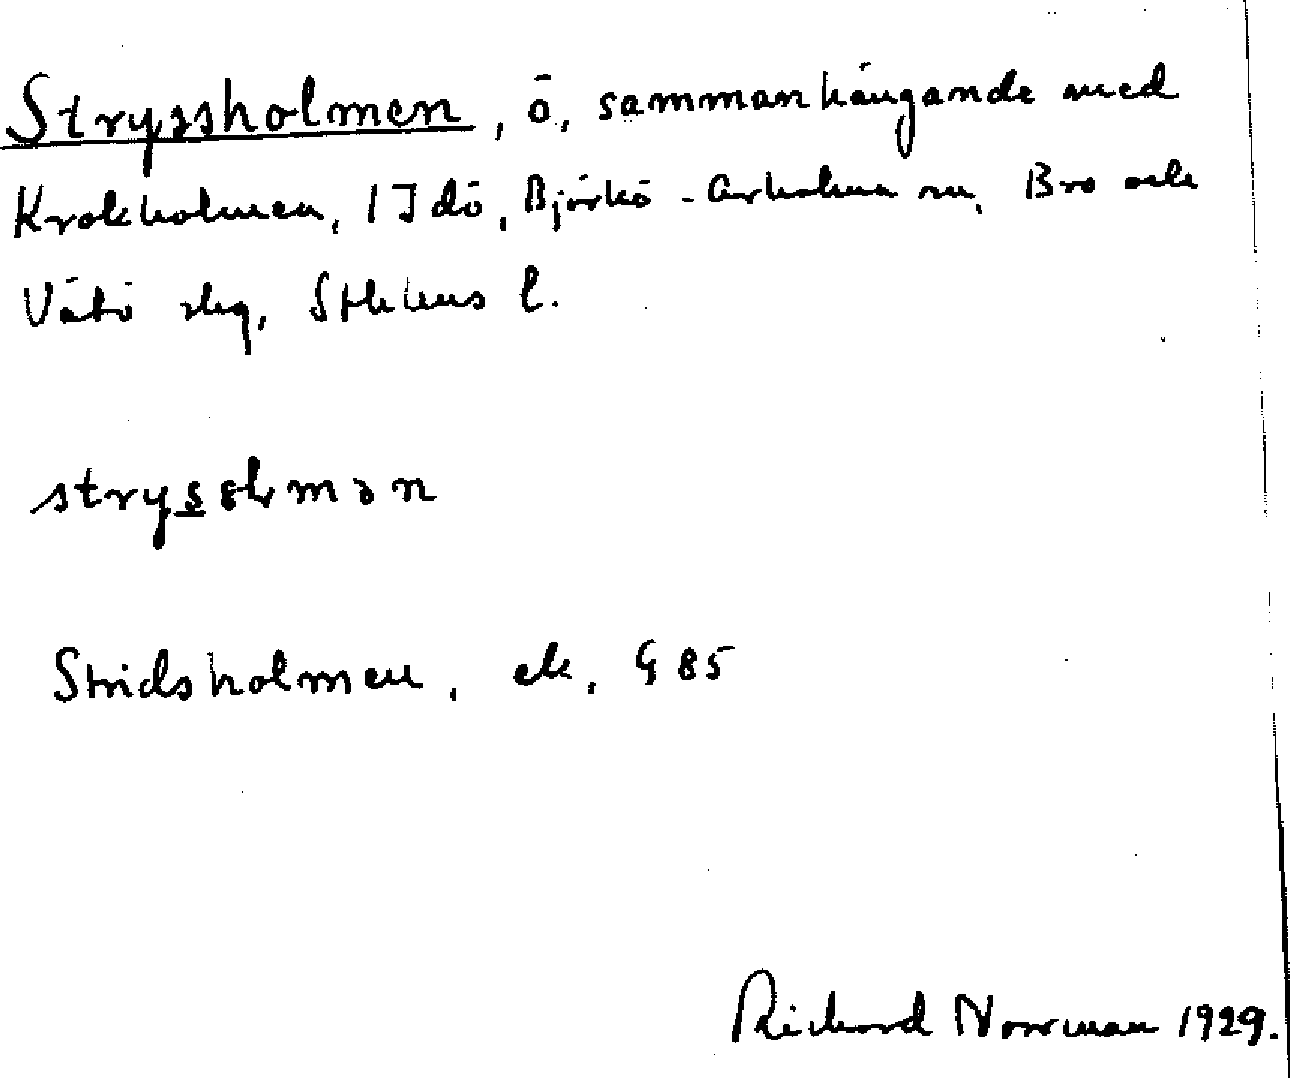 Stryssholmen, ö, sammanhängande med
Krokholmen, 1 Idö, Björkö-Arholma sn, Bro och
Vätö skg, Sthlms l.
stryssħmən
Stridsholmen, ek. § 85
Richard Norrman 1929.